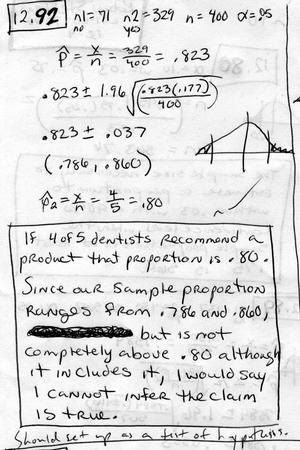 12.92 n1=71 n2=329 n=400 α=.95
no yes
p̂ = x/n = 329/400 = .823
.823 ± 1.96 √(.823(.177)/400)
.823 ± .037
(.786, .860)
p̂2 = x/n = 4/5 = .80
If 4 of 5 dentists recommend a
product that proportion is .80.
Since our sample proportion
ranges from .786 and .860,
but is not
completely above .80 although
it includes it, I would say
I cannot infer the claim
is true.
Should set up as a test of hypothesis.